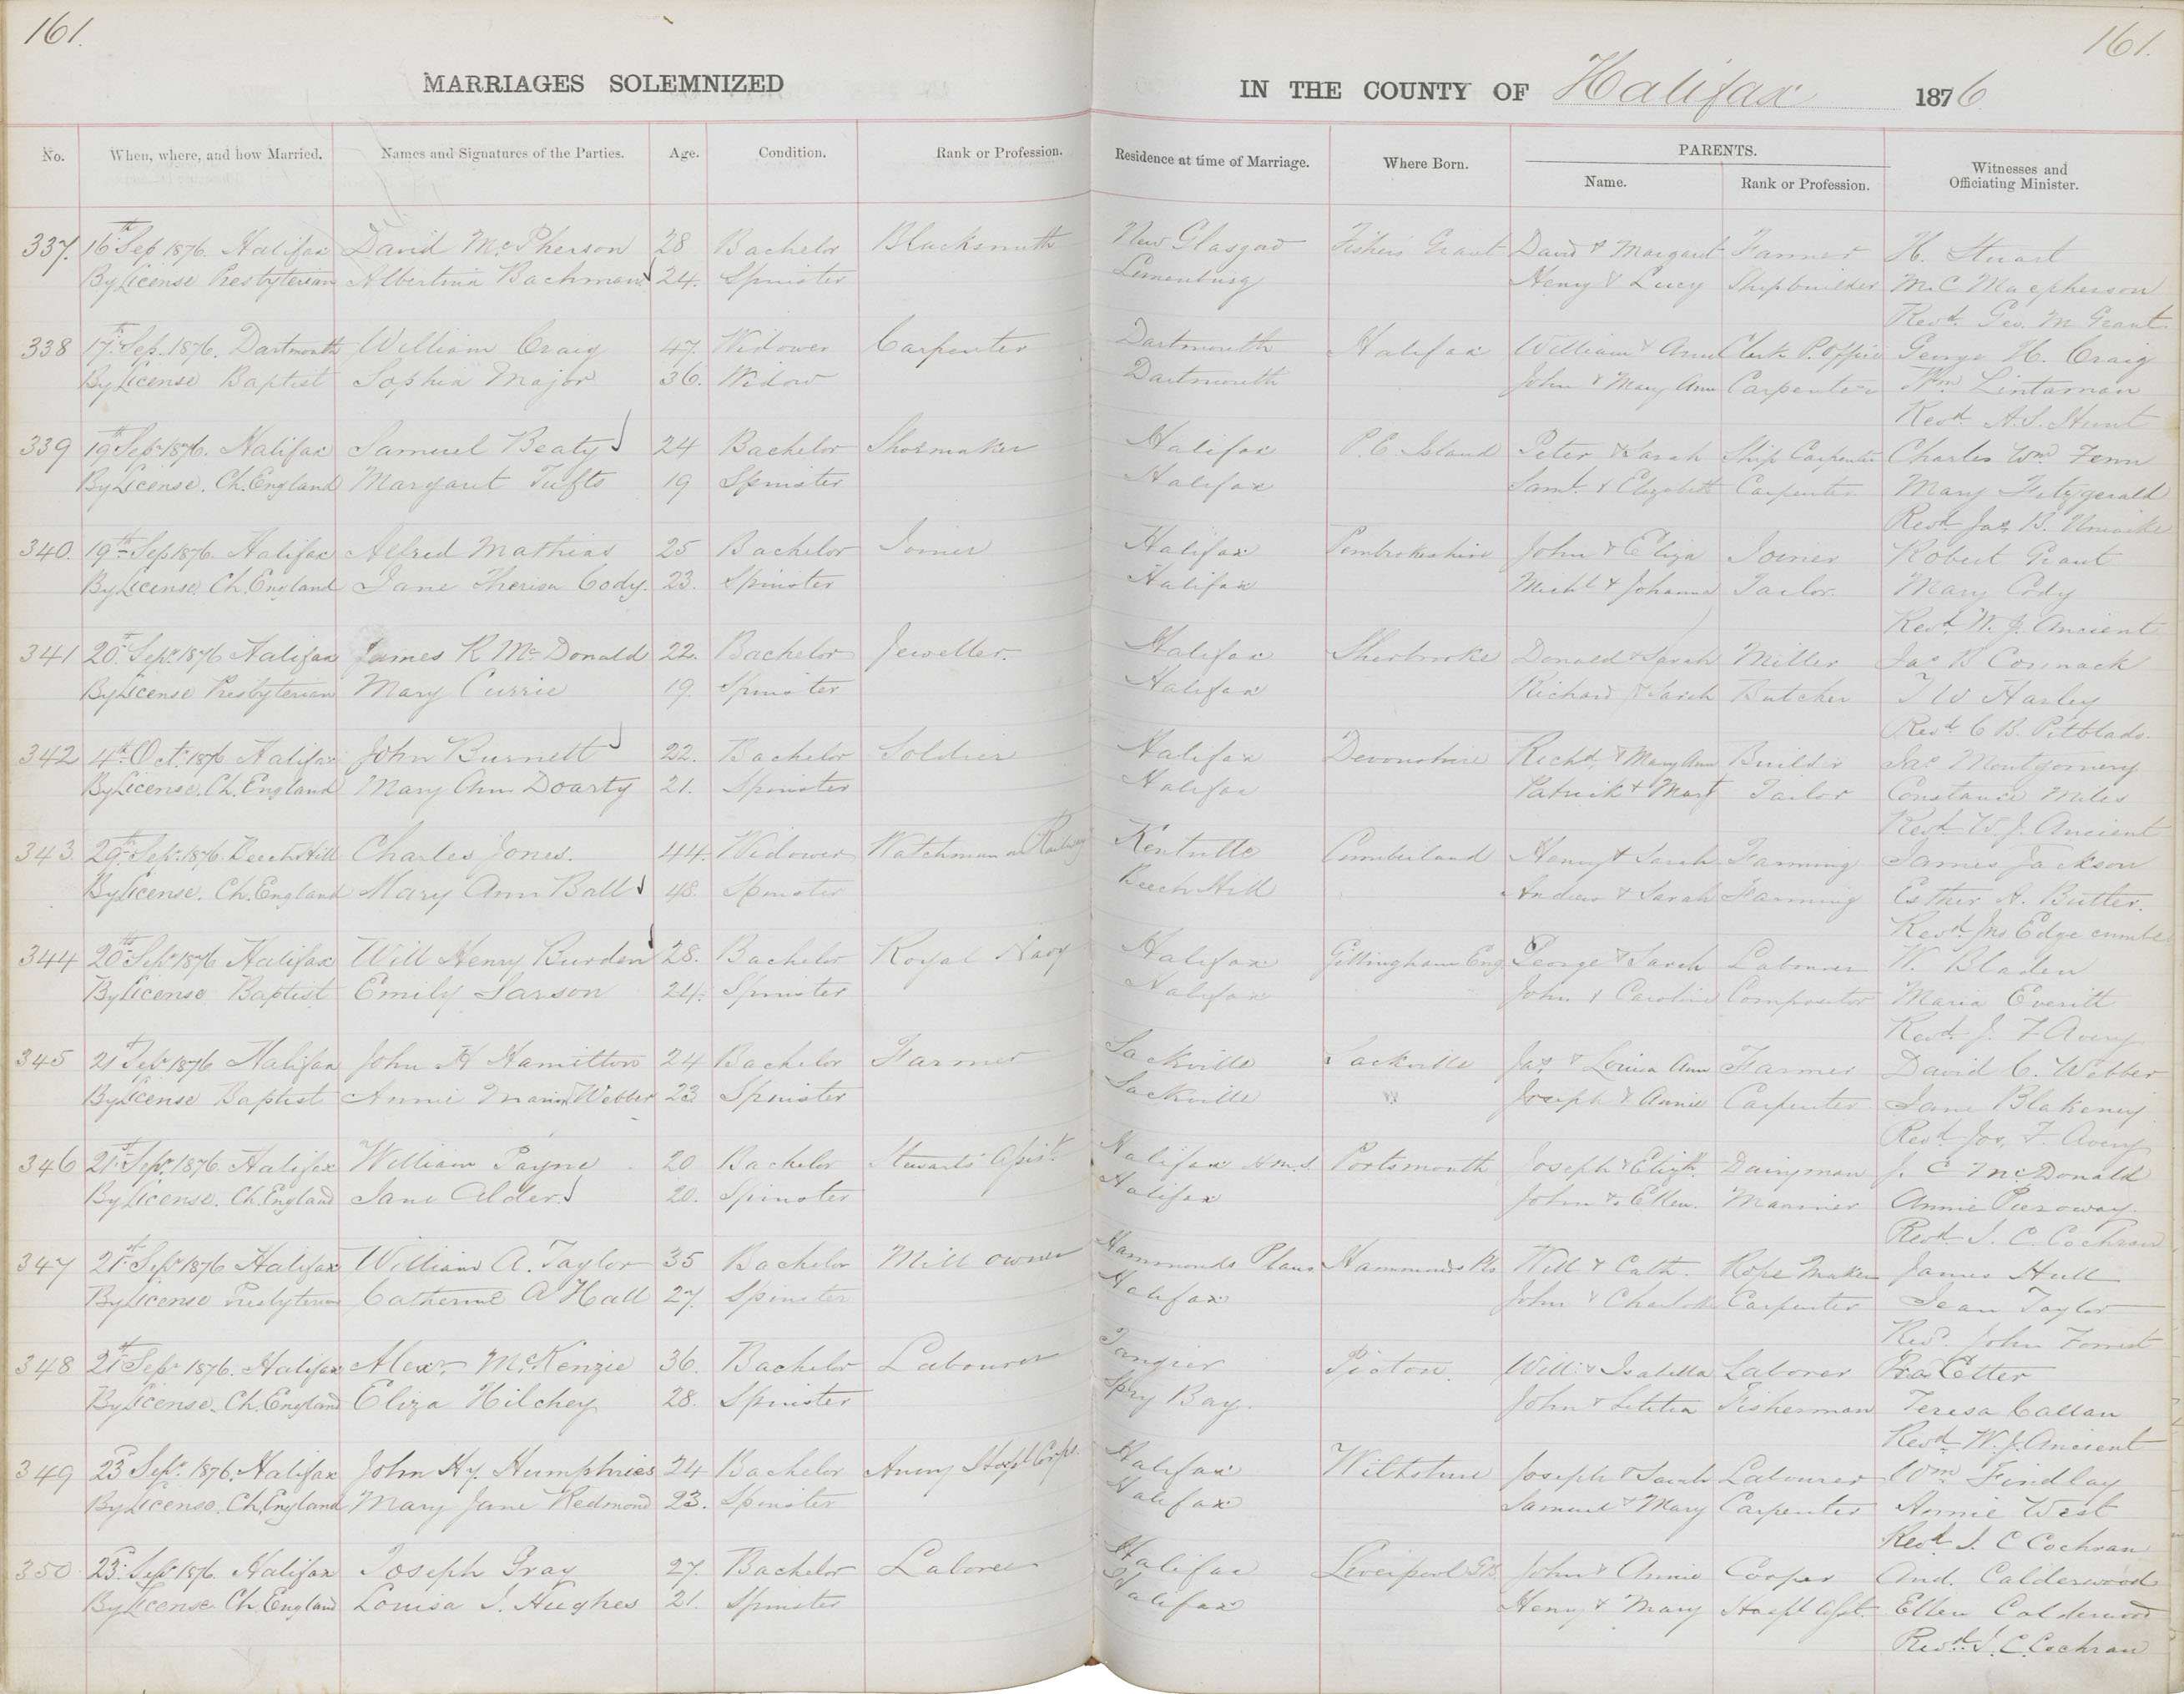 161.
161.
MARRIAGES SOLEMNIZED IN THE COUNTY OF Halifax 1876
No. When, where, and how Married. Names and Signatures of the Parties. Age. Condition. Rank or Profession. Residence at time of Marriage. Where Born. PARENTS. Witnesses and Officiating Minister.
Name. Rank or Profession.
337. 16th Sep 1876. Halifax David McPherson 28 Bachelor Blacksmith New Glasgow Fishers Grant David & Margaret Farmer H. Stuart
By License Presbyterian Albertina Bachman 24. Spinster Lunenburg Henry & Lucy Shipbuilder M. C Macpherson
Revd. Geo. M Grant
338 17th Sep. 1876. Dartmouth William Craig 47. Widower Carpenter Dartmouth Halifax William & Ann Clerk P. Office George H. Craig
By License Baptist Sophia Major 36. Widow Dartmouth John & Mary Ann Carpenter Wm Lintaman
Revd. A. S. Hunt
339 19th Sep 1876. Halifax Samuel Beaty 24 Bachelor Shoemaker Halifax P. E Island Peter & Sarah Ship Carpenter Charles Wm Fenn
By License. Ch. England Margaret Tufts 19 Spinster Halifax Saml. & Elizabeth Carpenter Mary Fitzgerald
Revd. Jas B. Uniacke
340. 19th Sep 1876. Halifax Alfred Mathias 25 Bachelor Joiner Halifax Pembrokeshire John & Eliza Joiner Robert Grant
By License Ch. England Jane Theresa Cody. 23. Spinster Halifax Michl & Johanna Tailor Mary Cody
Revd. W. J. Ancient
341 20th Sepr. 1876 Halifax James R McDonald 22. Bachelor Jeweller. Halifax Sherbrooke Donald & Sarah Miller Jas B Cormack
By License Presbyterian Mary Currie 19. Spinster Halifax Richard & Sarah Butcher T W Harley
Revd. C B. Pitblado.
342 4th Oct. 1876 Halifax John Burnett 22. Bachelor Soldier Halifax Devonshire Richd. & Mary Ann Builder Jas Montgomery
By License. Ch. England Mary Ann Doarty 21. Spinster Halifax Patrick & Mary Tailor Constance Miles
Revd. W. J. Ancient
343 29th Sepr. 1876. Beech Hill Charles Jones. 44. Widower Watchman on Railway Kentville Cumberland Henry & Sarah Farming James Jackson
By License. Ch. England Mary Ann Ball 48. Spinster Beech Hill Andrew & Sarah Farming Esther A. Butler.
Revd. Jno Edgecumbe
344 20th Sepr 1876 Halifax Will Henry Burden 28. Bachelor Royal Navy Halifax Gillingham Eng George & Sarah Labourer W. Bladen
By License Baptist Emily Sarson 24. Spinster Halifax John & Caroline Compositor Maria Everitt
Revd. J. F Avery
345 21st Sepr 1876 Halifax John H Hamilton 24 Bachelor Farmer Sackville Sackville Jas & Louisa Ann Farmer David C. Webber
By License Baptist Annie Maria Webber 23 Spinster Sackville " Joseph & Annie Carpenter Jane Blakeney
Revd. Jos. F. Avery
346 21st Sepr. 1876 Halifax William Payne 20 Bachelor Stewards Assist. Halifax H.M.S. Portsmouth Joseph & Elizth. Dairyman J. C McDonald
By License. Ch. England Jane Alder. 20. Spinster Halifax John & Ellen. Mariner Annie Pieroway.
Revd. J. C. Cochran
347 21st Sepr 1876 Halifax William A. Taylor 35 Bachelor Mill owner Hammonds Plans. Hammonds Pls Will & Cath. Rope Maker James Hull
By License Presbyterian Catherine A Hall 27. Spinster Halifax John & Charlotte Carpenter Jean Taylor
Revd. John Forrest
348 21st Sepr 1876. Halifax Alexr. McKenzie 36. Bachelor Labourer Tangier Pictou. Will. & Isabella Laborer Fras Etter
By License. Ch. England Eliza Hilchey 28. Spinster Spry Bay. John & Letitia Fisherman Teresa Callan
Revd. W. J. Ancient
349 23d Sepr. 1876. Halifax John Hy. Humphries 24 Bachelor Army Hospl Corps. Halifax Wiltshire Joseph & Sarah Labourer Wm Findlay
By License. Ch. England Mary Jane Redmond 23. Spinster Halifax Samuel & Mary Carpenter Annie West
Revd. J. C Cochran
350 23d. Sepr 1876. Halifax Joseph Gray 27. Bachelor Laborer Halifax Liverpool G.B. John & Annie Cooper And. Calderwood
By License Ch. England Louisa J. Hughes 21. Spinster Halifax Henry & Mary Hospl Asst. Ellen Calderwood
Revd. J. C. Cochran